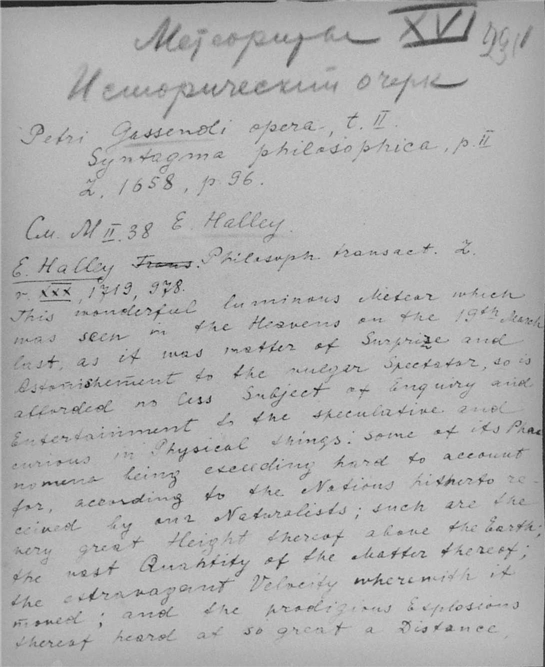 Метеориты XVI 231
Исторический очерк
Petri Gassendi opera, t. II.
Syntagma philosophica, p. II
L, 1658, p. 96.
См. M II. 38 E. Halley.
E. Halley Trans. Philosoph transact. L.
v. XXX, 1719, 978.
This wonderful luminous Meteor which
was seen in the Heavens on the 19th March
last, as it was matter of Surprize and
Astonishement to the vulgar Spectator, so is
afforded no less Subject of Enquiry and
Entertainment to the speculative and
curious in Physical things: some of its Phae
nomena being exceeding hard to account
for, according to the Notions hitherto re-
ceived by our Naturalists; such are the
very great Height thereof above the Earth;
the vast Quantity of the Matter thereof;
the extravagant Velocity wherewith it
moved; and the prodigious Explosions
thereof heard at so great a Distance,